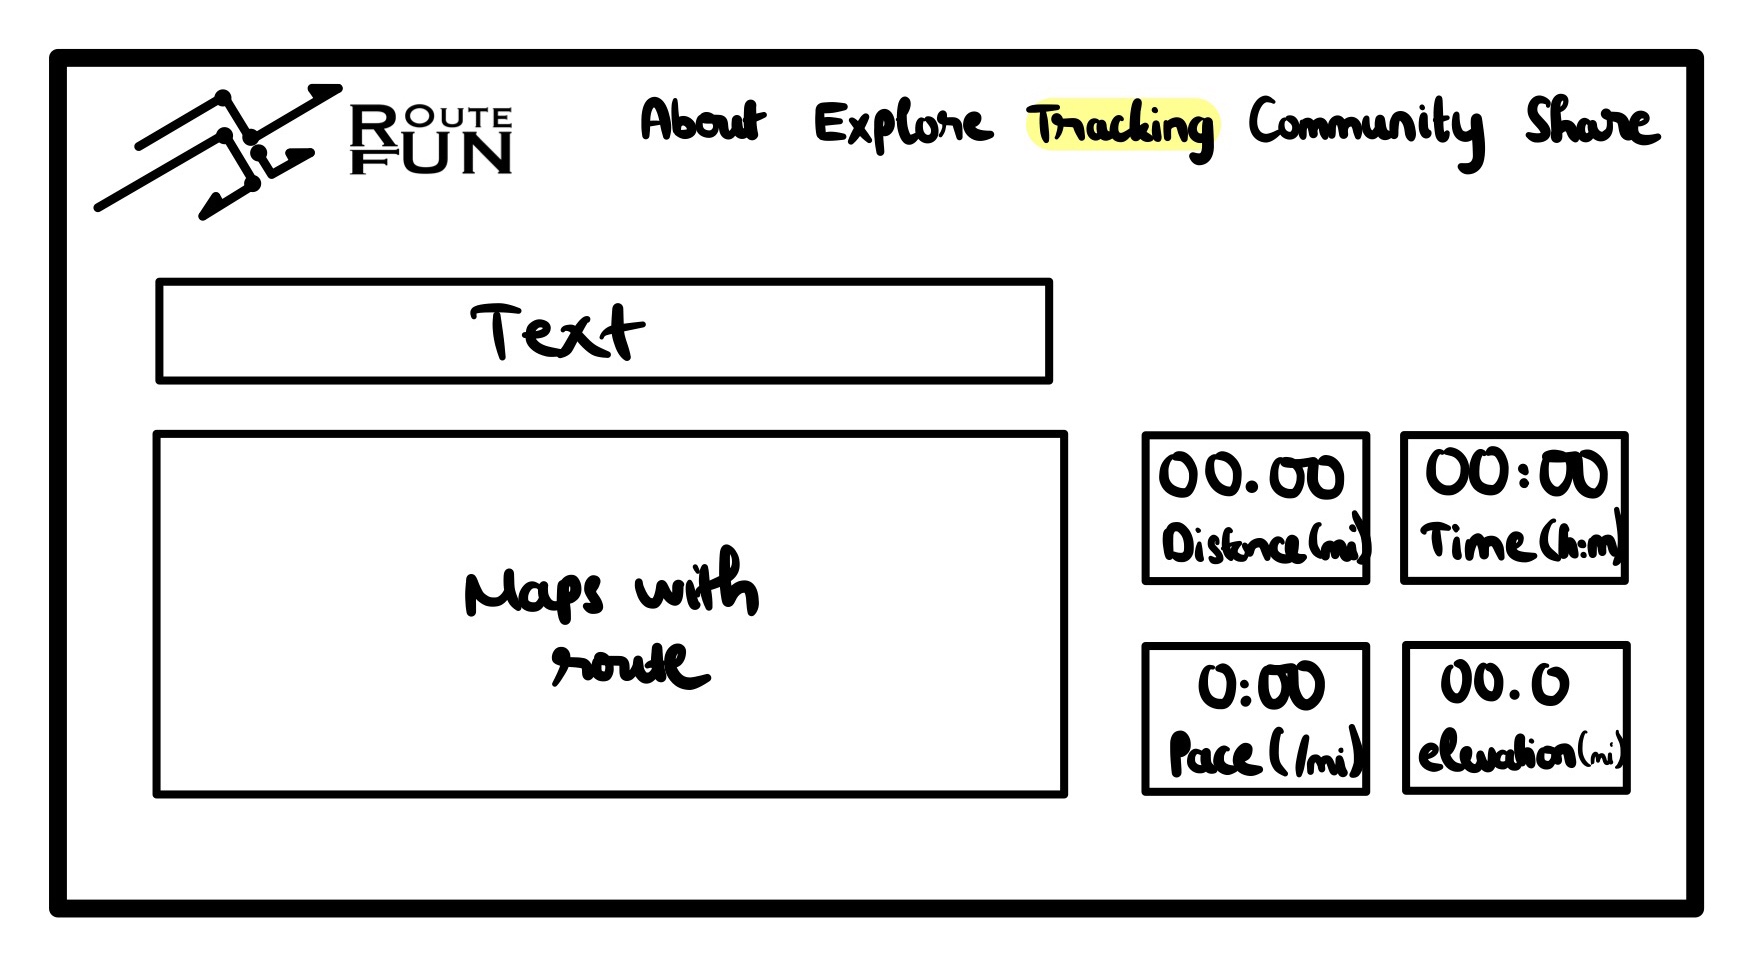 ROUTE
FUN
About Explore Tracking Community Share
Text
Maps with
route
00.00
Distance(mi)
00:00
Time(h:m)
0:00
Pace(/mi)
00.0
elevation(mi)